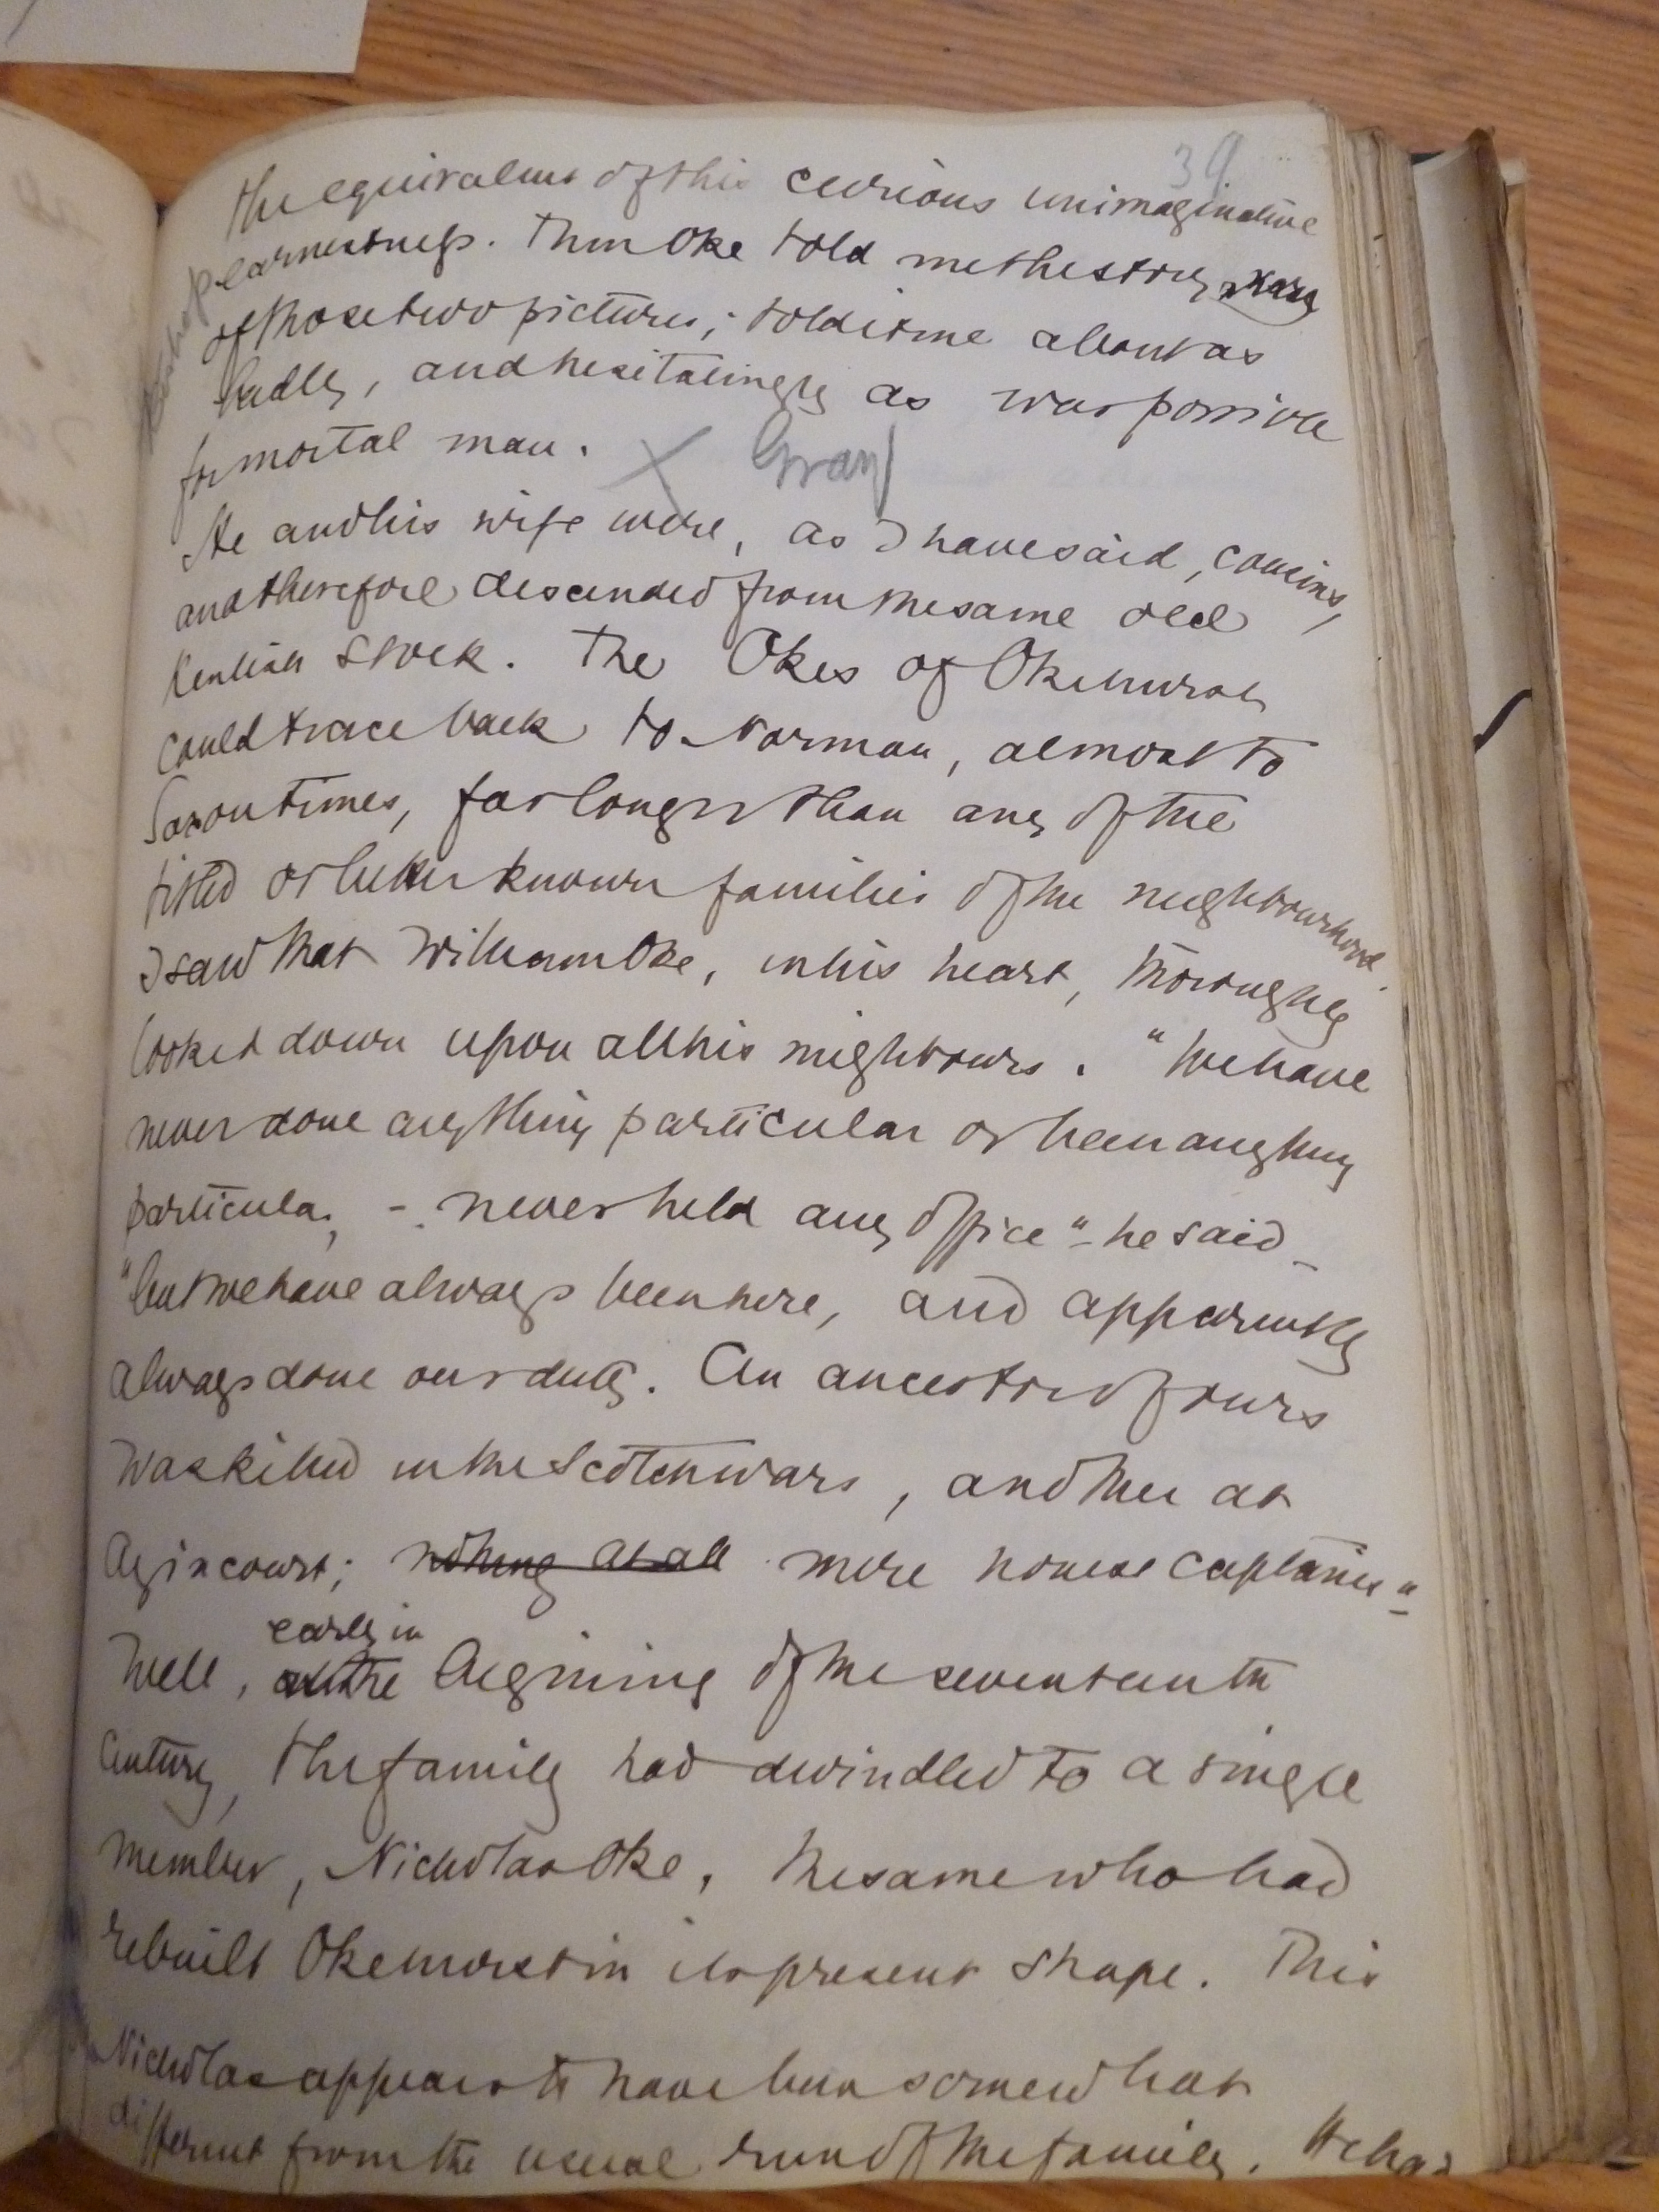 39
the equivalent of this curious unimaginative
earnestness. Then Oke told me the story
of those two pictures; told it me about as
badly, and hesitatingly as was possible
for mortal man. X Gray
He and his wife were, as I have said, cousins,
and therefore descended from the same old
Kentish stock. The Okes of Okehurst
could trace back to Norman, almost to
Saxon times, far longer than any of the
titled or better known families of the neighbourhood.
I saw that William Oke, in his heart, thoroughly
looked down upon all his neighbours. "We have
never done anything particular or been anything
particular, - never held any office" - he said -
"but we have always been here, and apparently
always done our duty. An ancestor of ours
was killed in the Scotch wars, another at
Agincourt; nothing at all mere honest captains"-
early in
Well, at the begining of the seventeenth
century, the family had dwindled to a single
member, Nicholas Oke, the same who had
rebuilt Okehurst in its present shape. This
Nicholas appears to have been somewhat
different from the usual run of the family. He had